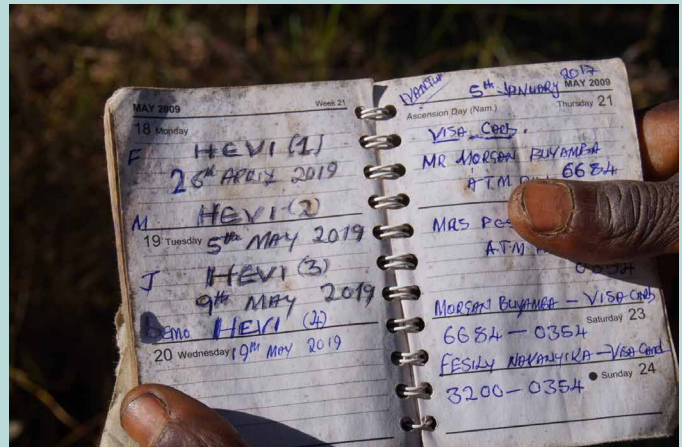 MAY 2009 Week 21
18 Monday
F HEVI (1)
26th APRIL 2019
M HEVI (2
19 Tuesday 5th MAY 2019
J HEVI (3)
9th MAY 2019
DEMO HEVI (4)
20 Wednesday 19th MAY 2019
2017
5th JANUARY MAY 2009
Ascension Day (Nam.) Thursday 21
VISA CARD.
MR MORGAN BUYAMBA
ATM 6684
MRS
ATM
MORGAN BUYAMBA - VISA CARD
Saturday 23
6684 - 0354
FESILY - VISA CARD
Sunday 24
3200 - 0354